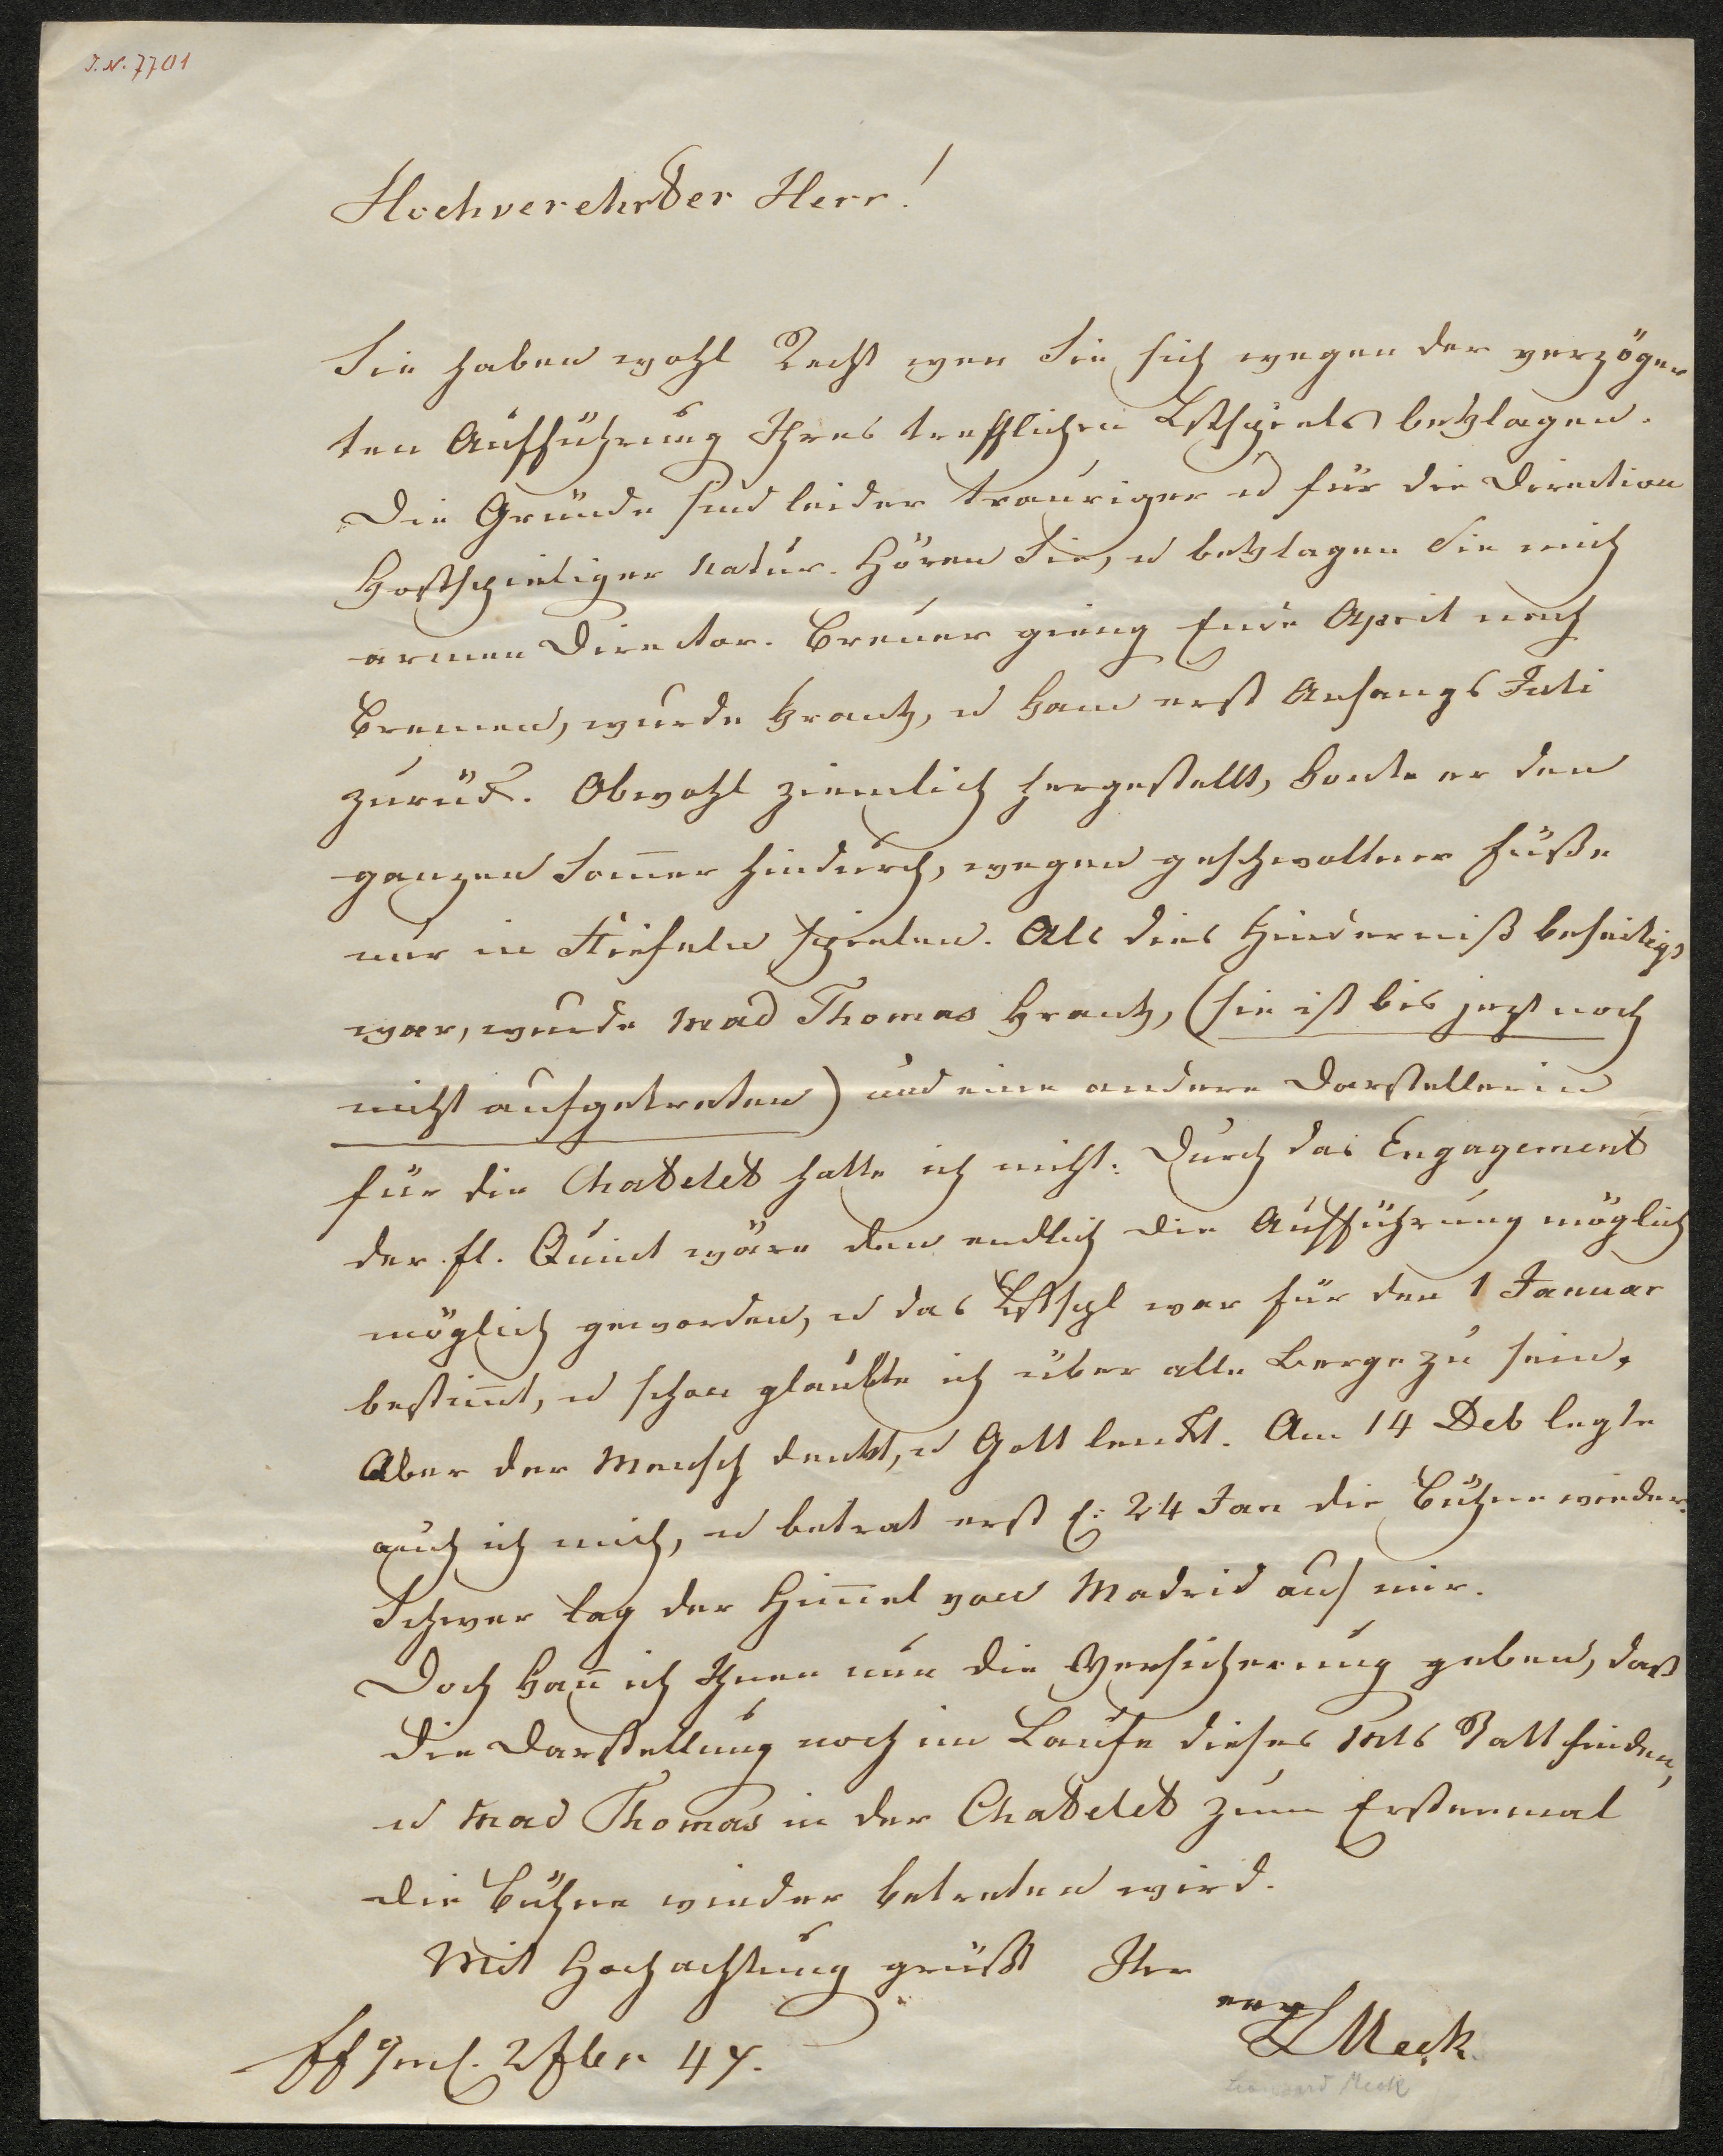 I.N. 7701
Hochverehrter Herr!
Sie haben wohl Recht wen Sie sich wegen der verzöger
ten Aufführung Ihres trefflichen Lstspiels beklagen.
Die Gründe sind leider trauriger u für die Direction
kostspieliger Natur. Hören Sie, u beklagen Sie mich
armen Director. Breuer gieng Ende April nach
Bremen, wurde krank, u kam erst Anfangs Juli
zurük. Obwohl ziemlich hergestellt, konte er den
ganzen Som̅er hindurch, wegen geschwollner Füße
nur in Stiefeln spielen. Als dies Hinderniß beseitigt
war, wurde Mad Thomas krank, (sie ist bis jezt noch
nicht aufgetreten) und eine andere Darstellerin
für die Chatelet hatte ich nicht. Durch das Engagement
der Fl. Quint wäre den endlich die Aufführung möglich
möglich geworden, u das Lstspl war für den 1 Januar
bestim̅t, u schon glaubte ich über alle Berge zu sein,
Aber der Mensch denkt, u Gott lenkt. Am 14 Deb legte
auch ich mich, u betrat erst d: 24 Jan die Bühne wieder.
Schwer lag der Him̅el von Madrid auf mir.
Doch kan̅ ich Ihnen nun die Versicherung geben, daß
die Darstellung noch im Laufe dieses Mts Statt finden,
u Mad Thomas in der Chatelet zum Erstenmal
die Bühne wieder betreten wird.
Mit Hochachtung grüßt Ihr
LMeck.
Ff 2 Fber 47.
Leonhard Meck